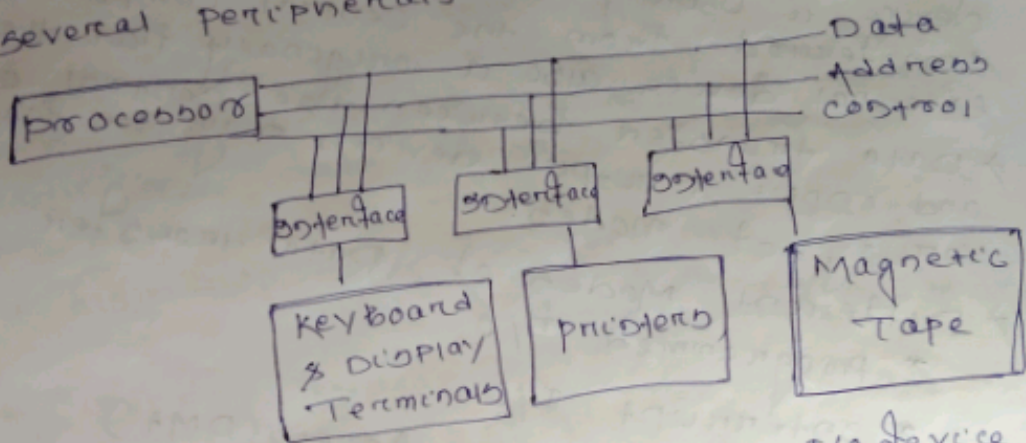 several peripherals
Data
Address
control
processor
Interface
Interface
Interface
Keyboard
& Display
Terminals
printers
Magnetic
Tape
device